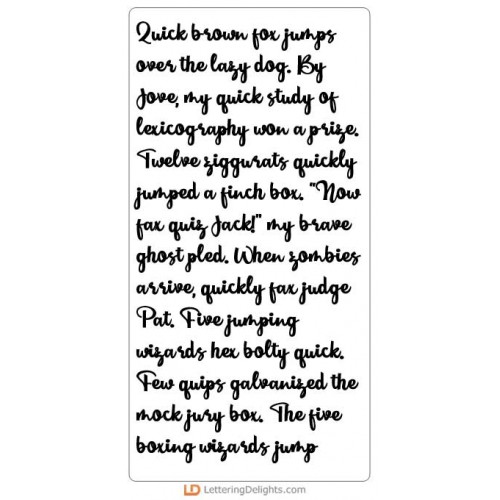 Quick brown fox jumps
over the lazy dog. By
Jove, my quick study of
lexicography won a prize.
Twelve ziggurats quickly
jumped a finch box. "Now
fax quiz Jack!" my brave
ghost pled. When zombies
arrive, quickly fax judge
Pat. Five jumping
wizards hex bolty quick.
Few quips galvanized the
mock jury box. The five
boxing wizards jump
LD LetteringDelights.com